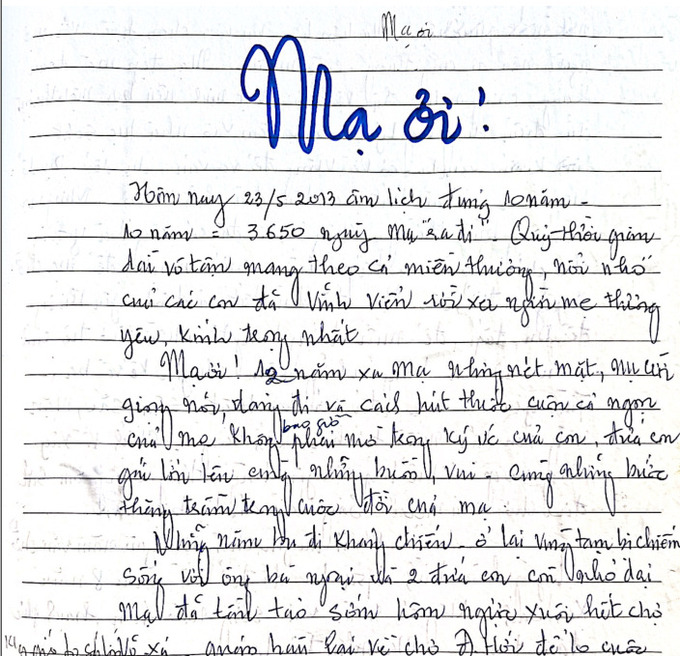 Mạ ơi
Mạ ơi!
Hôm nay 23/5 2013 âm lịch đúng 10 năm -
10 năm = 3.650 ngày Mạ "ra đi". Quỹ thời gian
dài vô tận mang theo cả miền thương, nỗi nhớ
của các con đã vĩnh viễn rời xa người mẹ thương
yêu, kính trọng nhất
Mạ ơi! 10 năm xa Mạ nhưng nét mặt, nụ cười
giọng nói, dáng đi và cách hút thuốc cuộn cả ngọn
của mẹ không bao giờ phải mờ trong ký ức của con, đứa con
gái lớn lên cùng những buồn, vui - cùng những bước
thăng trầm trong cuộc đời của mạ.
Những năm ba đi kháng chiến - ở lại vùng tạm bị chiếm
sống với ông bà ngoại và 2 đứa con còn nhỏ dại
Mạ đã tần tảo sớm hôm ngược xuôi hết chợ
lại về chợ Đ. Hới để lo cuộc